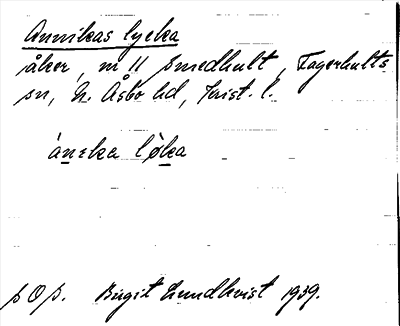 Annikas lycka
åker, nr 11 Smedhult, Fagerhults
sn, N. Åsbo hd, Krist. l.
áneka lø̀ka
p O p. Birgit Lundkvist 1939.